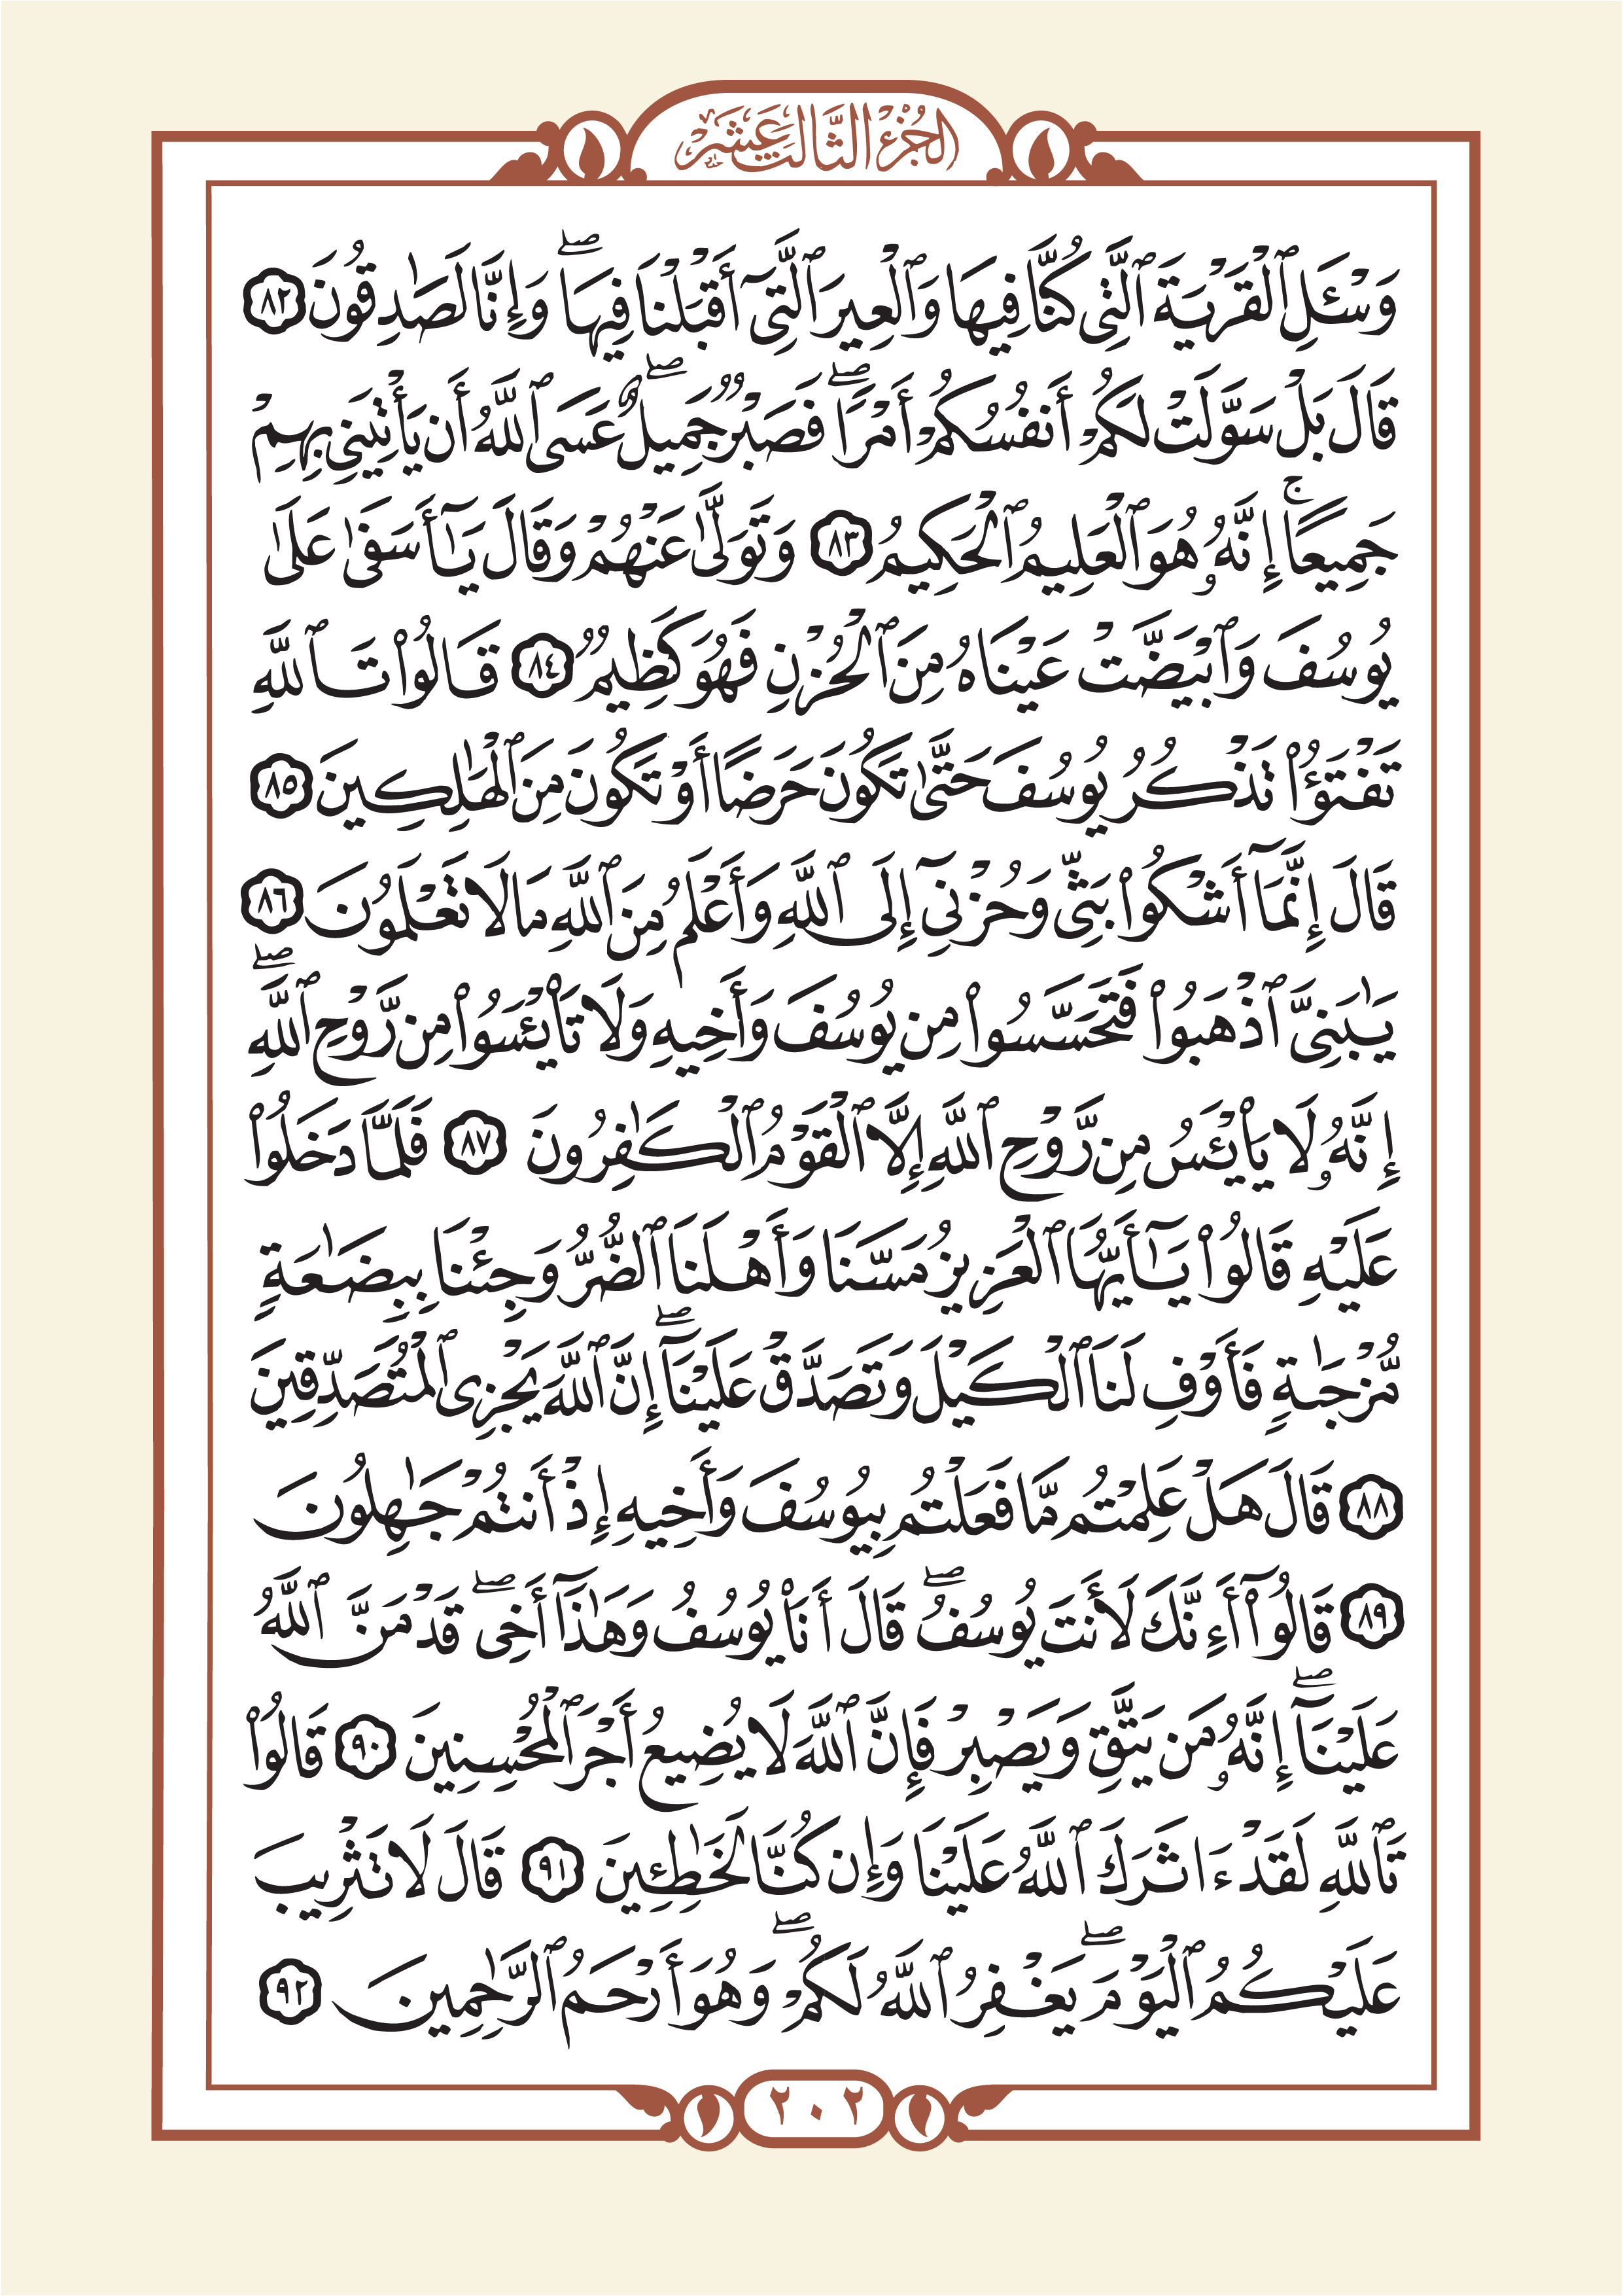 الجزء الثالث عشر
وَسْـَٔلِ ٱلْقَرْيَةَ ٱلَّتِى كُنَّا فِيهَا وَٱلْعِيرَ ٱلَّتِىٓ أَقْبَلْنَا فِيهَا ۖ وَإِنَّا لَصَٰدِقُونَ ٨٢
قَالَ بَلْ سَوَّلَتْ لَكُمْ أَنفُسُكُمْ أَمْرًا ۖ فَصَبْرٌ جَمِيلٌ ۖ عَسَى ٱللَّهُ أَن يَأْتِيَنِى بِهِمْ
جَمِيعًا ۚ إِنَّهُۥ هُوَ ٱلْعَلِيمُ ٱلْحَكِيمُ ٨٣ وَتَوَلَّىٰ عَنْهُمْ وَقَالَ يَٰٓأَسَفَىٰ عَلَىٰ
يُوسُفَ وَٱبْيَضَّتْ عَيْنَاهُ مِنَ ٱلْحُزْنِ فَهُوَ كَظِيمٌ ٨٤ قَالُوا۟ تَٱللَّهِ
تَفْتَؤُا۟ تَذْكُرُ يُوسُفَ حَتَّىٰ تَكُونَ حَرَضًا أَوْ تَكُونَ مِنَ ٱلْهَٰلِكِينَ ٨٥
قَالَ إِنَّمَآ أَشْكُوا۟ بَثِّى وَحُزْنِىٓ إِلَى ٱللَّهِ وَأَعْلَمُ مِنَ ٱللَّهِ مَا لَا تَعْلَمُونَ ٨٦
يَٰبَنِىَّ ٱذْهَبُوا۟ فَتَحَسَّسُوا۟ مِن يُوسُفَ وَأَخِيهِ وَلَا تَا۟يْـَٔسُوا۟ مِن رَّوْحِ ٱللَّهِ ۖ
إِنَّهُۥ لَا يَا۟يْـَٔسُ مِن رَّوْحِ ٱللَّهِ إِلَّا ٱلْقَوْمُ ٱلْكَٰفِرُونَ ٨٧ فَلَمَّا دَخَلُوا۟
عَلَيْهِ قَالُوا۟ يَٰٓأَيُّهَا ٱلْعَزِيزُ مَسَّنَا وَأَهْلَنَا ٱلضُّرُّ وَجِئْنَا بِبِضَٰعَةٍ
مُّزْجَىٰةٍ فَأَوْفِ لَنَا ٱلْكَيْلَ وَتَصَدَّقْ عَلَيْنَآ ۖ إِنَّ ٱللَّهَ يَجْزِى ٱلْمُتَصَدِّقِينَ
٨٨ قَالَ هَلْ عَلِمْتُم مَّا فَعَلْتُم بِيُوسُفَ وَأَخِيهِ إِذْ أَنتُمْ جَٰهِلُونَ
٨٩ قَالُوٓا۟ أَءِنَّكَ لَأَنتَ يُوسُفُ ۖ قَالَ أَنَا۠ يُوسُفُ وَهَٰذَآ أَخِى ۖ قَدْ مَنَّ ٱللَّهُ
عَلَيْنَآ ۖ إِنَّهُۥ مَن يَتَّقِ وَيَصْبِرْ فَإِنَّ ٱللَّهَ لَا يُضِيعُ أَجْرَ ٱلْمُحْسِنِينَ ٩٠ قَالُوا۟
تَٱللَّهِ لَقَدْ ءَاثَرَكَ ٱللَّهُ عَلَيْنَا وَإِن كُنَّا لَخَٰطِـِٔينَ ٩١ قَالَ لَا تَثْرِيبَ
عَلَيْكُمُ ٱلْيَوْمَ ۖ يَغْفِرُ ٱللَّهُ لَكُمْ ۖ وَهُوَ أَرْحَمُ ٱلرَّٰحِمِينَ ٩٢
٢٠٢